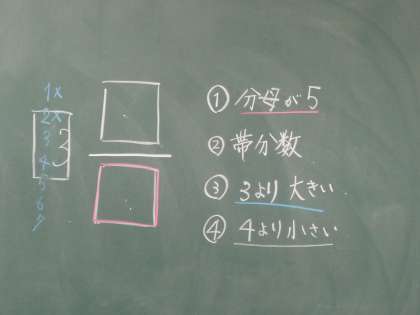 1x
2x
3
4
5
6
7
3
① 分母が5
② 帯分数
③ 3より大きい
④ 4より小さい